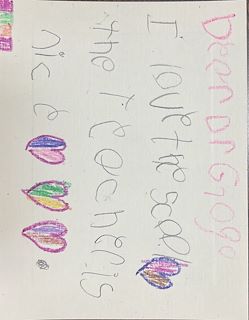 Dear Dr Gogo
I love the scool
the Teecher is
nice